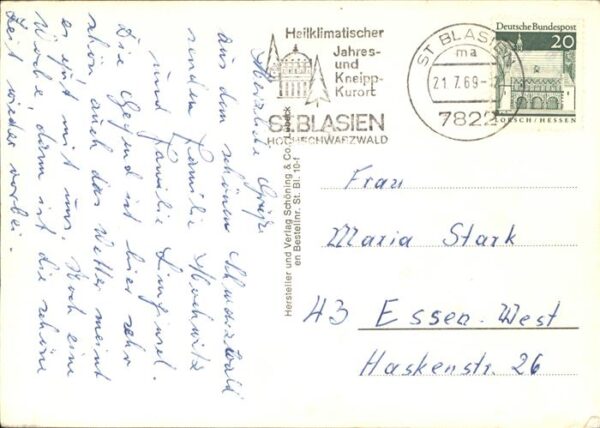 Herzliche Grüße
aus dem schönen Schwarzwald
senden Familie
und Familie
Die Gegend ist hier sehr
schön auch das Wetter meint
es gut mit uns. Noch eine
Woche, dann ist die schöne
Zeit wieder vorbei.
Hersteller und Verlag Schöning & Co. Lübeck
en Bestellnr. St. Bl. 10-f
Heilklimatischer
Jahres-
und
Kneipp-
Kurort
ST.BLASIEN
HOCHSCHWARZWALD
ST BLASIEN
ma
21.7.69-
7822
Deutsche Bundespost
20
LORSCH/HESSEN
Frau
Maria Stark
43 Essen-West
Haskenstr. 26